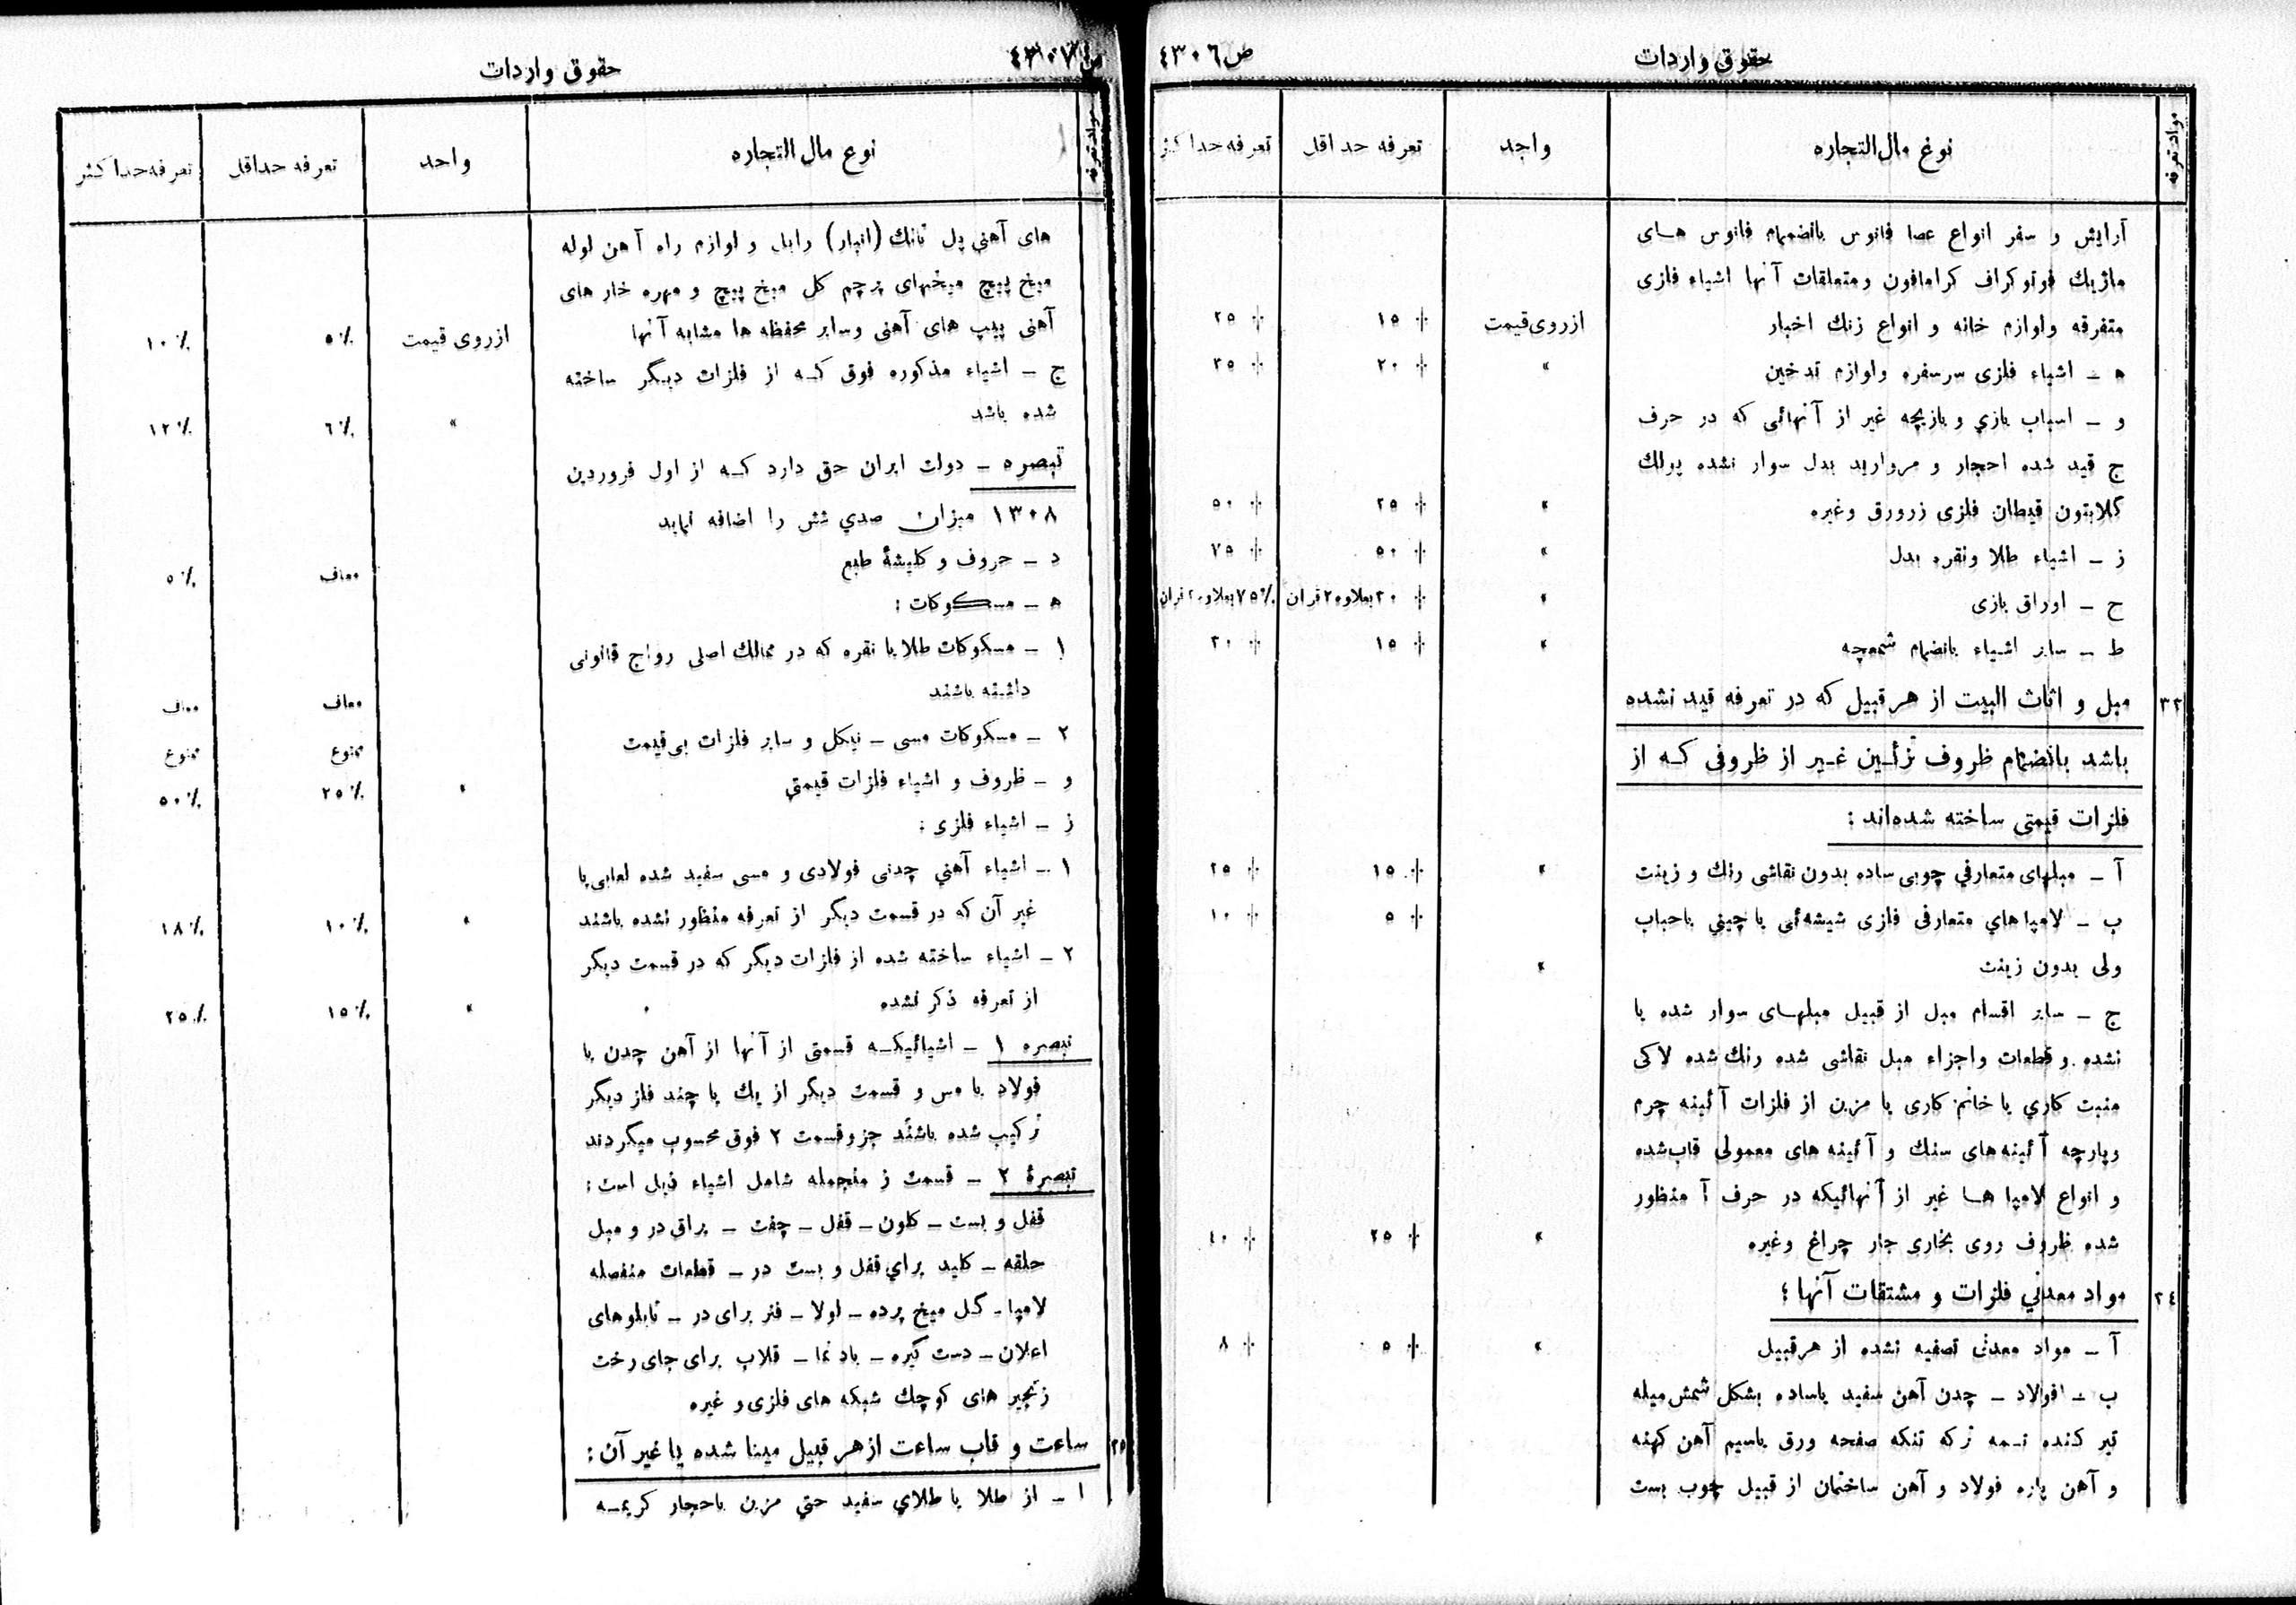 حقوق واردات
ص ٤٣٠٦
مواد تعرفه
نوع مال‌التجاره
واحد
تعرفه حد اقل
تعرفه حداکثر
آرایش و سفر انواع عصا فانوس بانضمام فانوس هـای
ماژیك فوتوکراف کرامافون ومتعلقات آنها اشیاء فلزی
متفرقه ولوازم خانه و انواع زنك اخبار ازروی‌قیمت ٪ ١٥ ٪ ٢٥
ه ـ اشیاء فلزی سرسفره ولوازم تدخین » ٪ ٢٠ ٪ ٣٥
و ـ اسباب بازي و بازیچه غیر از آنهائی که در حرف
ج قید شده احجار و مروارید بدل سوار نشده پولك
گلابتون قیطان فلزی زرورق وغیره » ٪ ٢٥ ٪ ٥٠
ز ـ اشیاء طلا ونقره بدل » ٪ ٥٠ ٪ ٧٥
ح ـ اوراق بازی » ٪ ٣٠بعلاوه٢قران ٪٧٥بعلاوه٢قران
ط ـ سایر اشیاء بانضمام شمعچه » ٪ ١٥ ٪ ٣٠
٣٣ مبل و اثاث البیت از هرقبیل که در تعرفه قید نشده
باشد بانضمام ظروف تزأین غـیر از ظروفی کـه از
فلزات قیمتی ساخته شده‌اند :
آ ـ مبلهای متعارفي چوبی ساده بدون نقاشی رنك و زینت » ٪ ١٥ ٪ ٢٥
ب ـ لامپا هاي متعارفی فلزی شیشه‌ئی یا چیني باحباب ٪ ٥ ٪ ١٠
ولی بدون زینت »
ج ـ سایر اقسام مبل از قبیل مبلهـای سوار شده یا
نشده و قطعات واجزاء مبل نقاشی شده رنك شده لاکی
منبت کاري یا خاتم کاری یا مزین از فلزات آئینه چرم
وپارچه آئینه‌های سنك و آئینه های معمولی قاب‌شده
و انواع لامپا هـا غیر از آنهائیکه در حرف آ منظور
شده ظروف روی بخاری جار چراغ وغیره » ٪ ٢٥ ٪ ٤٠
٣٤ مواد معدني فلزات و مشتقات آنها ؛
آ ـ مواد معدنی تصفیه نشده از هرقبیل » ٪ ٥ ٪ ٨
ب ـ فولاد ـ چدن آهن سفید یاساده بشکل شمش میله
تیر کنده تسمه ترکه تنکه صفحه ورق یاسیم آهن کهنه
و آهن پاره فولاد و آهن ساختمان از قبیل چوب بست
حقوق واردات
ص ٤٣٠٧
مواد تعرفه
نوع مال التجاره
واحد
تعرفه حداقل
تعرفه‌حداکثر
های آهني پل تانك (انبار) رایل و لوازم راه آهن لوله
میخ پیچ میخهای پرچم کل میخ پیچ و مهره خار های
آهنی پیپ های آهنی وسایر محفظه ها مشابه آنها ازروی قیمت ٥٪ ١٠٪
ج ـ اشیاء مذکوره فوق کـه از فلزات دیگر ساخته
شده باشد » ٦٪ ١٢٪
تبصره ـ دولت ایران حق دارد کـه از اول فروردین
١٣٠٨ میزان صدي شش را اضافه نماید
د ـ حروف و کلیشۀ طبع معاف ٥٪
ه ـ مسکوکات :
١ ـ مسکوکات طلا یا نقره که در ممالك اصلی رواج قانونی
داشته باشند معاف معاف
٢ ـ مسکوکات مسی ـ نیکل و سایر فلزات بی‌قیمت ممنوع ممنوع
و ـ ظروف و اشیاء فلزات قیمتي » ٢٥٪ ٥٠٪
ز ـ اشیاء فلزی :
١ ـ اشیاء آهني چدنی فولادی و مسی سفید شده لعابی‌یا
غیر آن که در قسمت دیگر از تعرفه منظور نشده باشند » ١٠٪ ١٨٪
٢ ـ اشیاء ساخته شده از فلزات دیگر که در قسمت دیگر
از تعرفه ذکر نشده » ١٥٪ ٢٥٪
تبصره ١ ـ اشیائیکـه قسمتی از آنها از آهن چدن یا
فولاد یا مس و قسمت دیگر از یك یا چند فلز دیگر
ترکیب شده باشند جزوقسمت ٢ فوق محسوب میگردند
تبصرۀ ٢ ـ قسمت ز منجمله شامل اشیاء ذیل است :
قفل و بست ـ کلون ـ قفل ـ چفت ـ یراق در و مبل
حلقه ـ کلید براي قفل و بست در ـ قطعات منفصله
لامپا ـ کل میخ پرده ـ لولا ـ فنر برای در ـ تابلوهای
اعلان ـ دست گیره ـ باد نما ـ قلاب برای جای رخت
زنجیر های کوچك شبکه های فلزی و غیره
٣٥ ساعت و قاب ساعت ازهر قبیل مینا شده یا غیر آن :
ا ـ از طلا یا طلاي سفید حتي مزین باحجار کریمـه